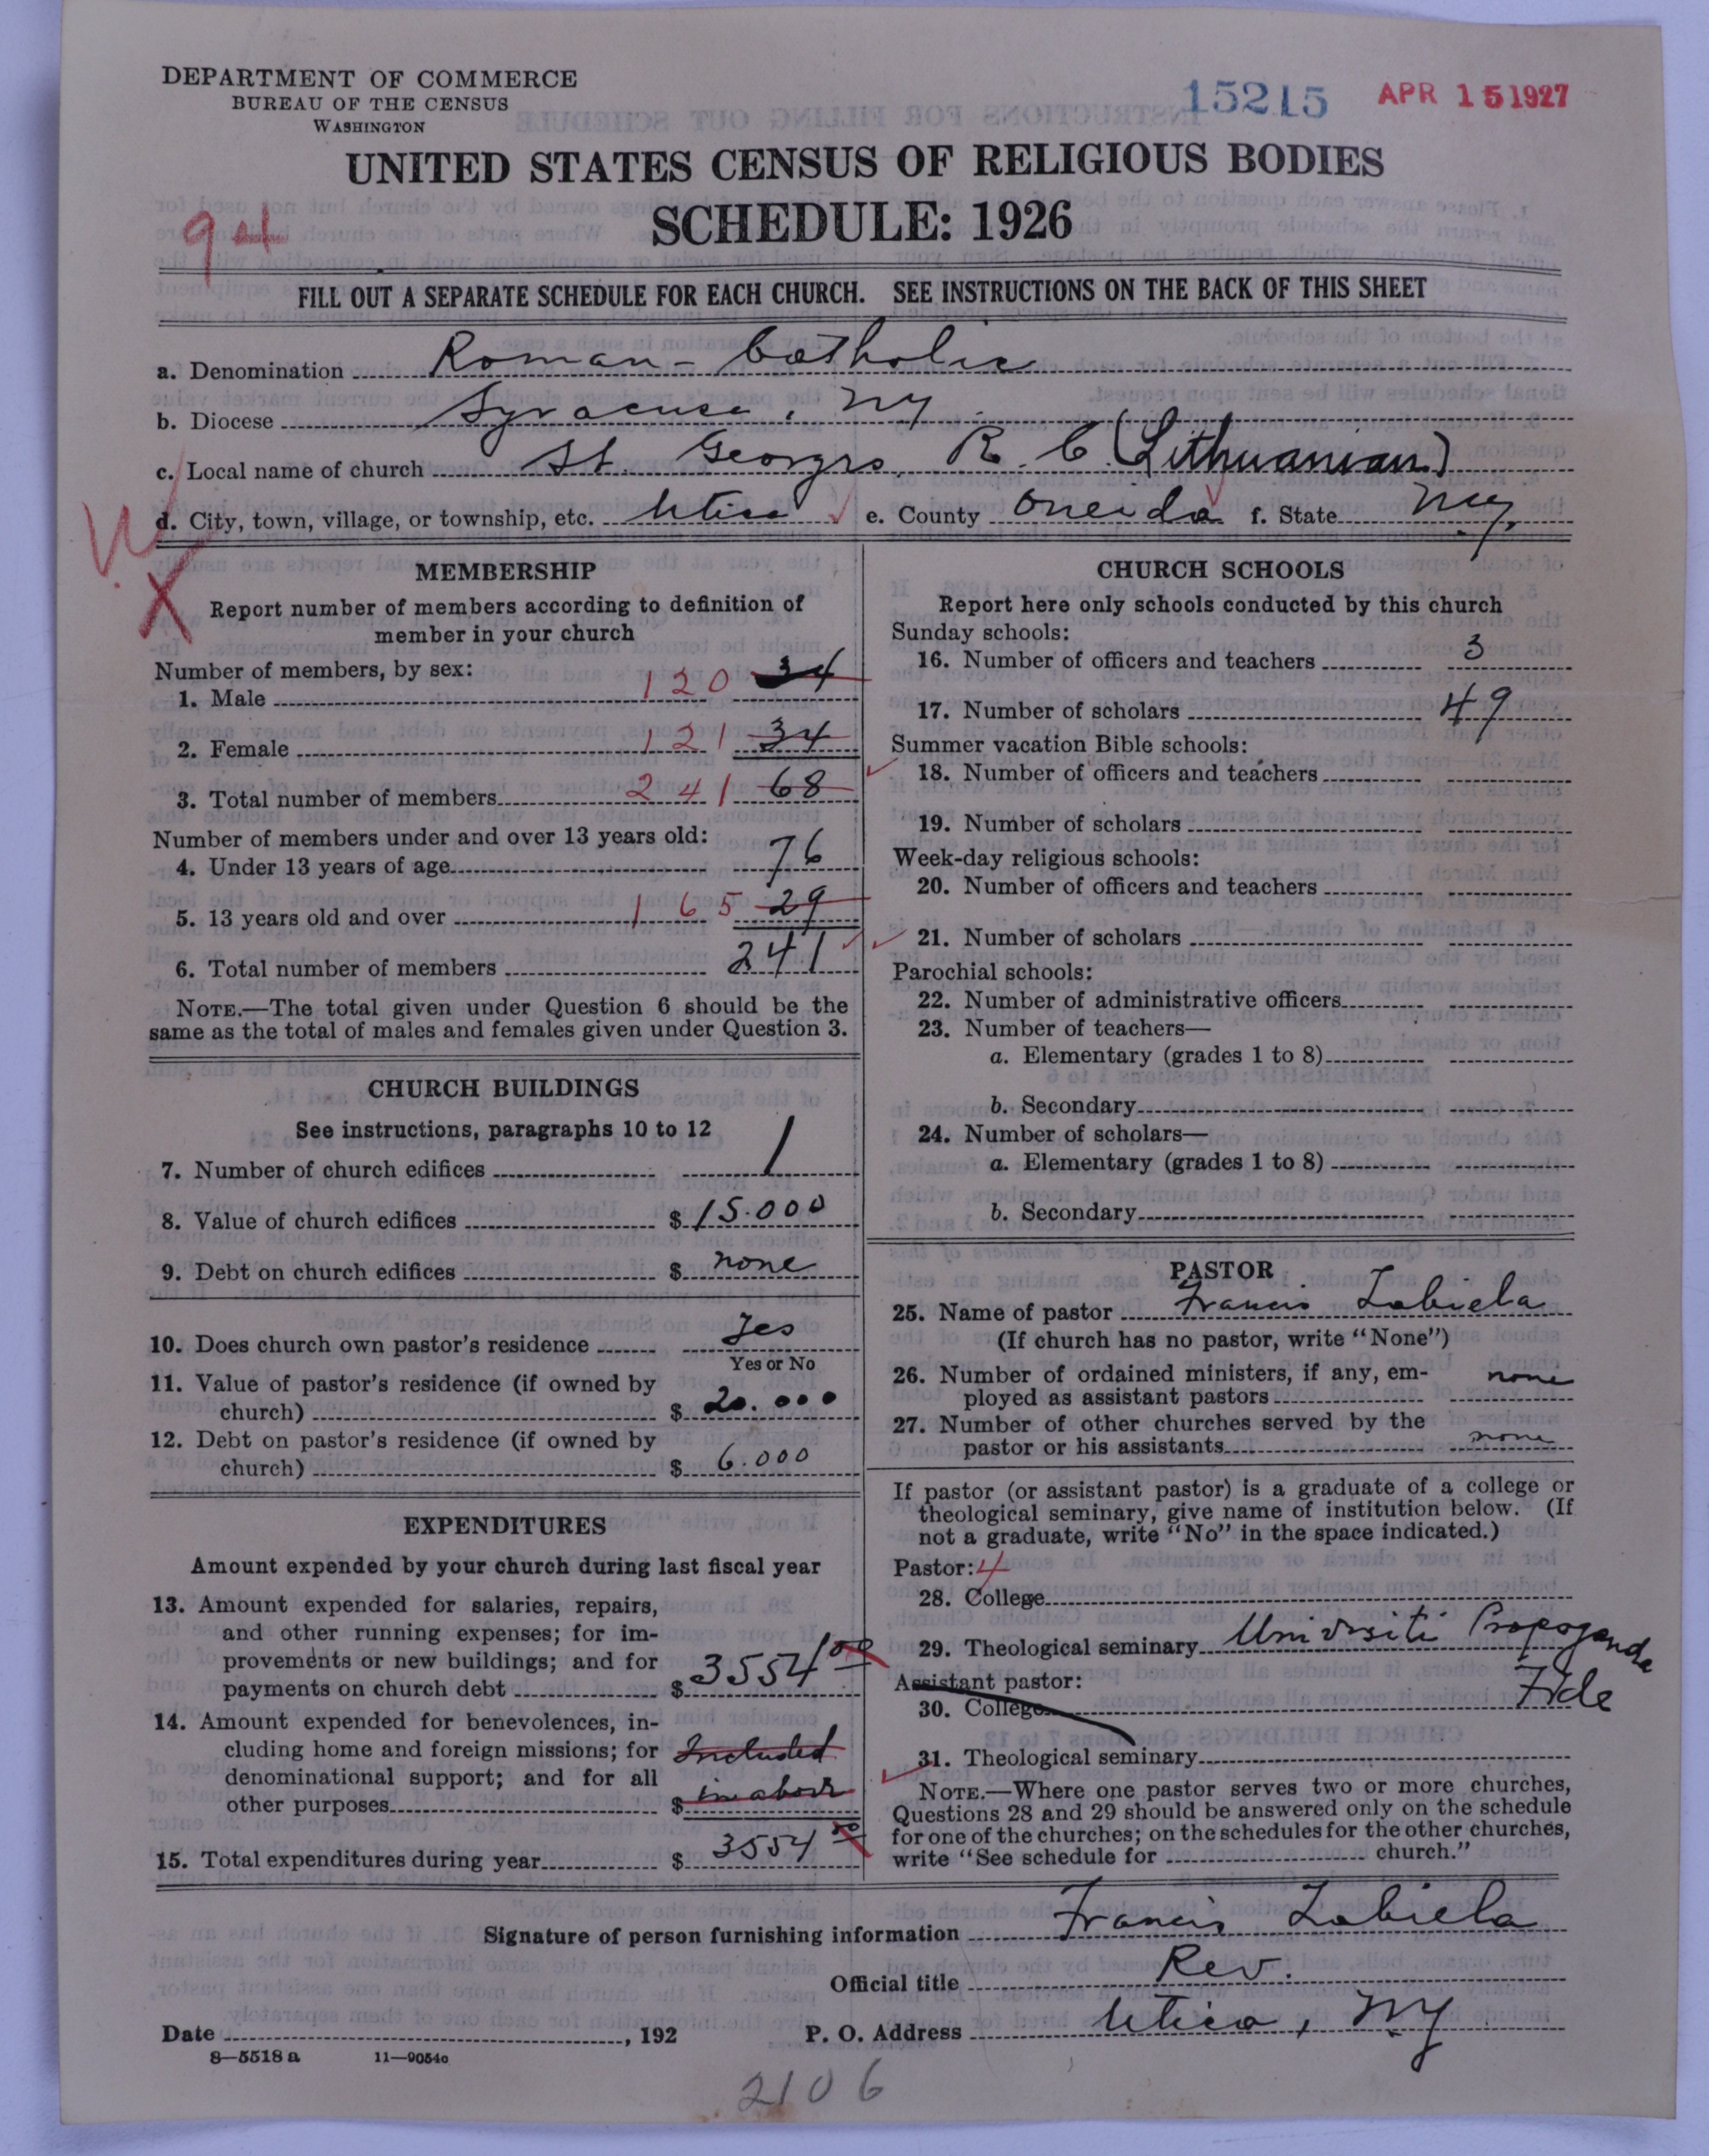 DEPARTMENT OF COMMERCE
BUREAU OF THE CENSUS
WASHINGTON
15215 APR 15 1927
UNITED STATES CENSUS OF RELIGIOUS BODIES
SCHEDULE: 1926
94
FILL OUT A SEPARATE SCHEDULE FOR EACH CHURCH. SEE INSTRUCTIONS ON THE BACK OF THIS SHEET
a. Denomination Roman-Catholic
b. Diocese Syracuse, NY
c. Local name of church St. Georges R. C. (Lithuanian)
d. City, town, village, or township, etc. Utica e. County Oneida f. State NY.
X
MEMBERSHIP
Report number of members according to definition of
member in your church
Number of members, by sex:
1. Male 120 34
2. Female 121 34
3. Total number of members 241 68
Number of members under and over 13 years old:
4. Under 13 years of age 76
5. 13 years old and over 165 29
6. Total number of members 241
NOTE.—The total given under Question 6 should be the
same as the total of males and females given under Question 3.
CHURCH BUILDINGS
See instructions, paragraphs 10 to 12
7. Number of church edifices 1
8. Value of church edifices $ 15.000
9. Debt on church edifices $ none
10. Does church own pastor's residence Yes
Yes or No
11. Value of pastor's residence (if owned by
church) $ 20.000
12. Debt on pastor's residence (if owned by
church) $ 6.000
EXPENDITURES
Amount expended by your church during last fiscal year
13. Amount expended for salaries, repairs,
and other running expenses; for im-
provements or new buildings; and for
payments on church debt $ 3554 00
14. Amount expended for benevolences, in-
cluding home and foreign missions; for Included
denominational support; and for all
other purposes $ in above
15. Total expenditures during year $ 3554 00
CHURCH SCHOOLS
Report here only schools conducted by this church
Sunday schools:
16. Number of officers and teachers 3
17. Number of scholars 49
Summer vacation Bible schools:
18. Number of officers and teachers
19. Number of scholars
Week-day religious schools:
20. Number of officers and teachers
21. Number of scholars
Parochial schools:
22. Number of administrative officers
23. Number of teachers—
a. Elementary (grades 1 to 8)
b. Secondary
24. Number of scholars—
a. Elementary (grades 1 to 8)
b. Secondary
PASTOR
25. Name of pastor Francis Zabiela
(If church has no pastor, write "None")
26. Number of ordained ministers, if any, em-
ployed as assistant pastors none
27. Number of other churches served by the
pastor or his assistants none
If pastor (or assistant pastor) is a graduate of a college or
theological seminary, give name of institution below. (If
not a graduate, write "No" in the space indicated.)
Pastor: 4
28. College
29. Theological seminary Propoganda
Assistant pastor: Fide
30. College
31. Theological seminary
NOTE.—Where one pastor serves two or more churches,
Questions 28 and 29 should be answered only on the schedule
for one of the churches; on the schedules for the other churches,
write "See schedule for church."
Signature of person furnishing information Francis Zabiela
Official title Rev.
Date , 192 P. O. Address Utica, NY
8—5518 a 11—9054c
2106